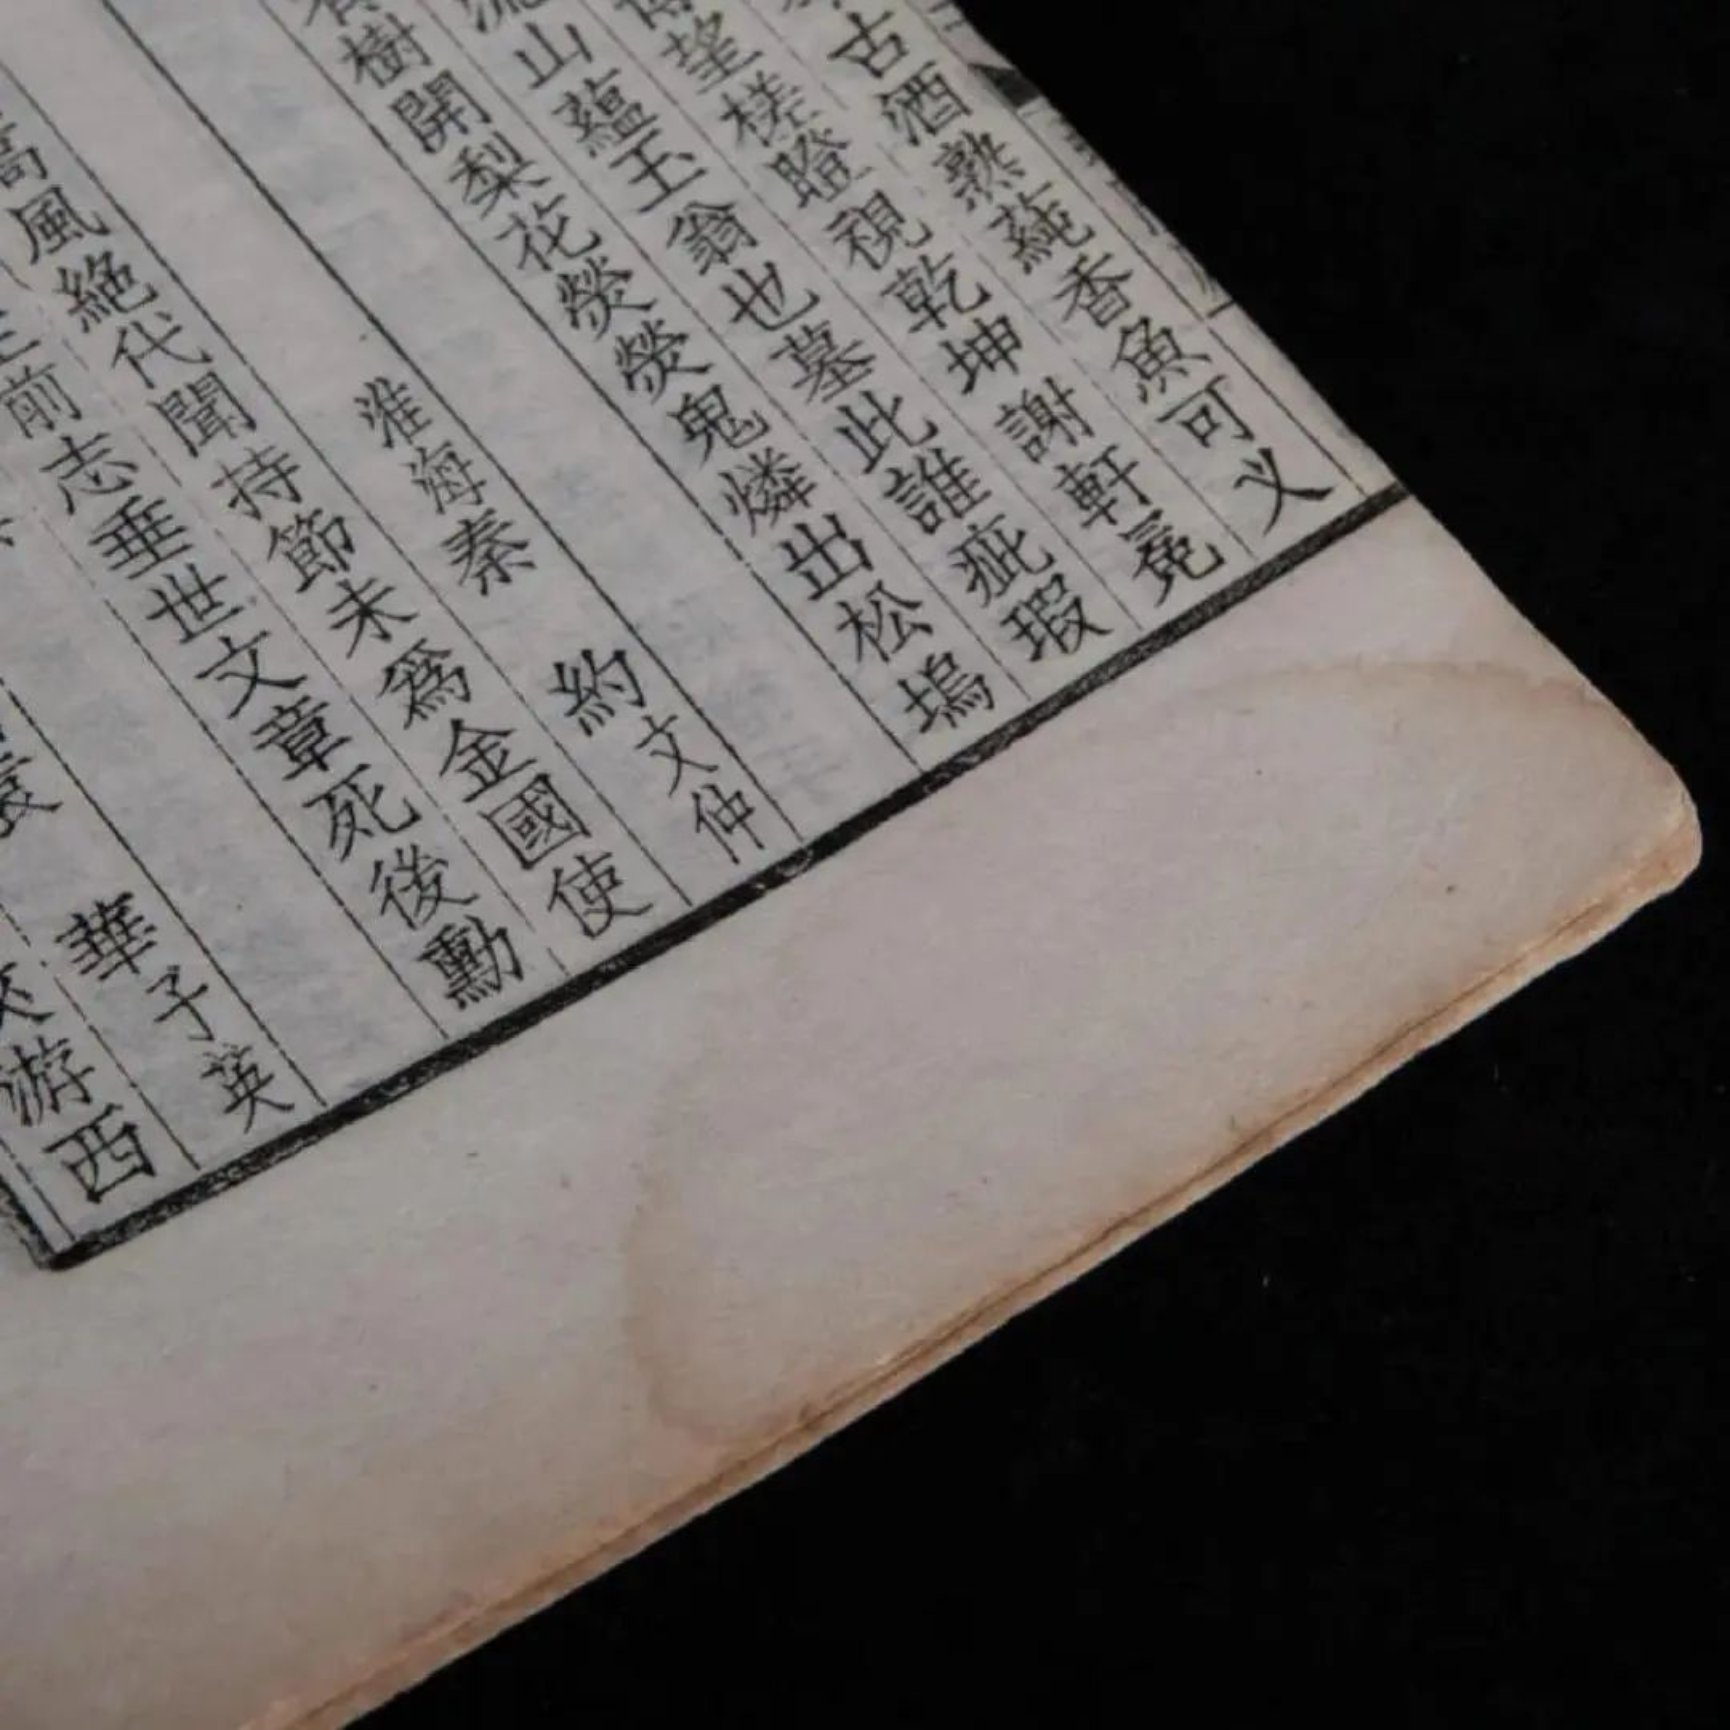 古酒熟蒓香魚可㸚
望槎瞪視乾坤謝軒冕
山蘊玉翁也墓此誰疵瑕
樹開梨花熒熒鬼燐出松塢
淮海秦 約文仲
持節未爲金國使
風絕代聞
前志垂世文章死後勳
華子英
游西